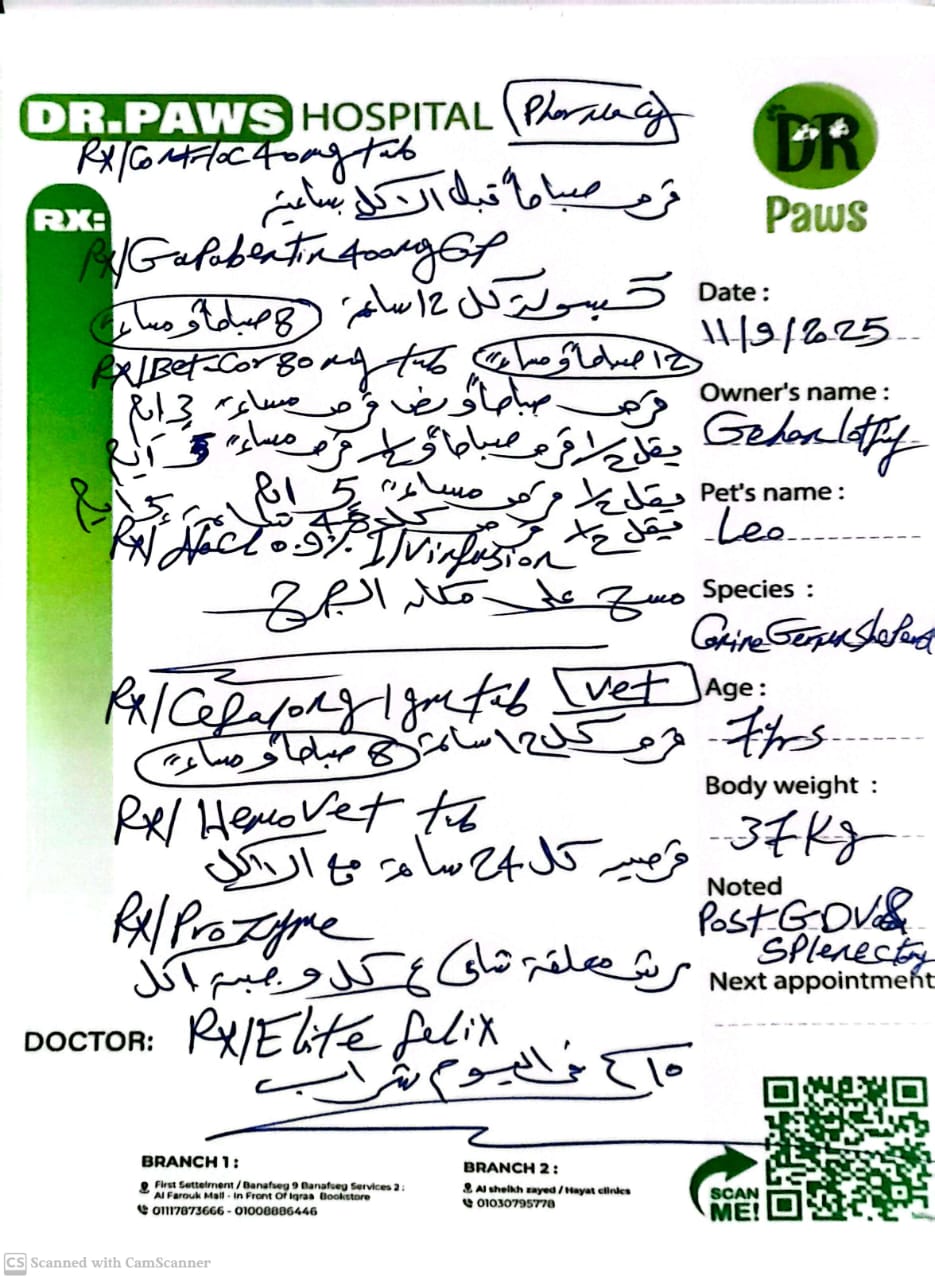 DR.PAWS HOSPITAL
Pharmacy
DR
Paws
Rx/Controloc 40mg tab
قرص صباحاً قبل الاكل بساعة
RX:
Rx/Gapabentin 400mg
كبسولة كل 12 ساعة 8 صباحاً و مساءً
Rx/Bet-Cor 80mg tab 12 صباحاً و مساءً
قرص صباحاً و نص قرص مساءً 3 ايام
يقل 1/2 قرص صباحاً و 1/2 قرص مساءً 5 ايام
يقل 1/2 قرص مساءً 5 ايام
يقل 1/2 قرص كل 48 ساعة
Rx/NaCl 0.9% I/V infusion
مسح على مكان الجرح
Rx/ 1gm tab vet
قرص كل 12 ساعة 8 صباحاً و مساءً
Rx/ HemoVet tab
قرصين كل 24 ساعة مع الاكل
Rx/Prozyme
رش معلقة شاي ع كل وجبة اكل
DOCTOR: Rx/Elite felix
في اليوم شراب
Date :
11/9/2025
Owner's name :
Gehan lotfy
Pet's name :
Leo
Species :
Age :
7yrs
Body weight :
37 Kg
Noted
Post GDV &
Splenectomy
Next appointment
BRANCH 1 :
First Settelment / Banafseg 9 Banafseg Services 2 :
Al Farouk Mall - In Front Of Iqraa Bookstore
01117873666 - 01008886446
BRANCH 2 :
Al sheikh zayed / Hayat clinics
01030795778
SCAN
ME!
CS Scanned with CamScanner